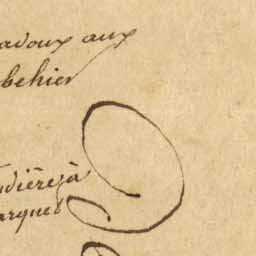 avoux aux
behier
udière, à
arques